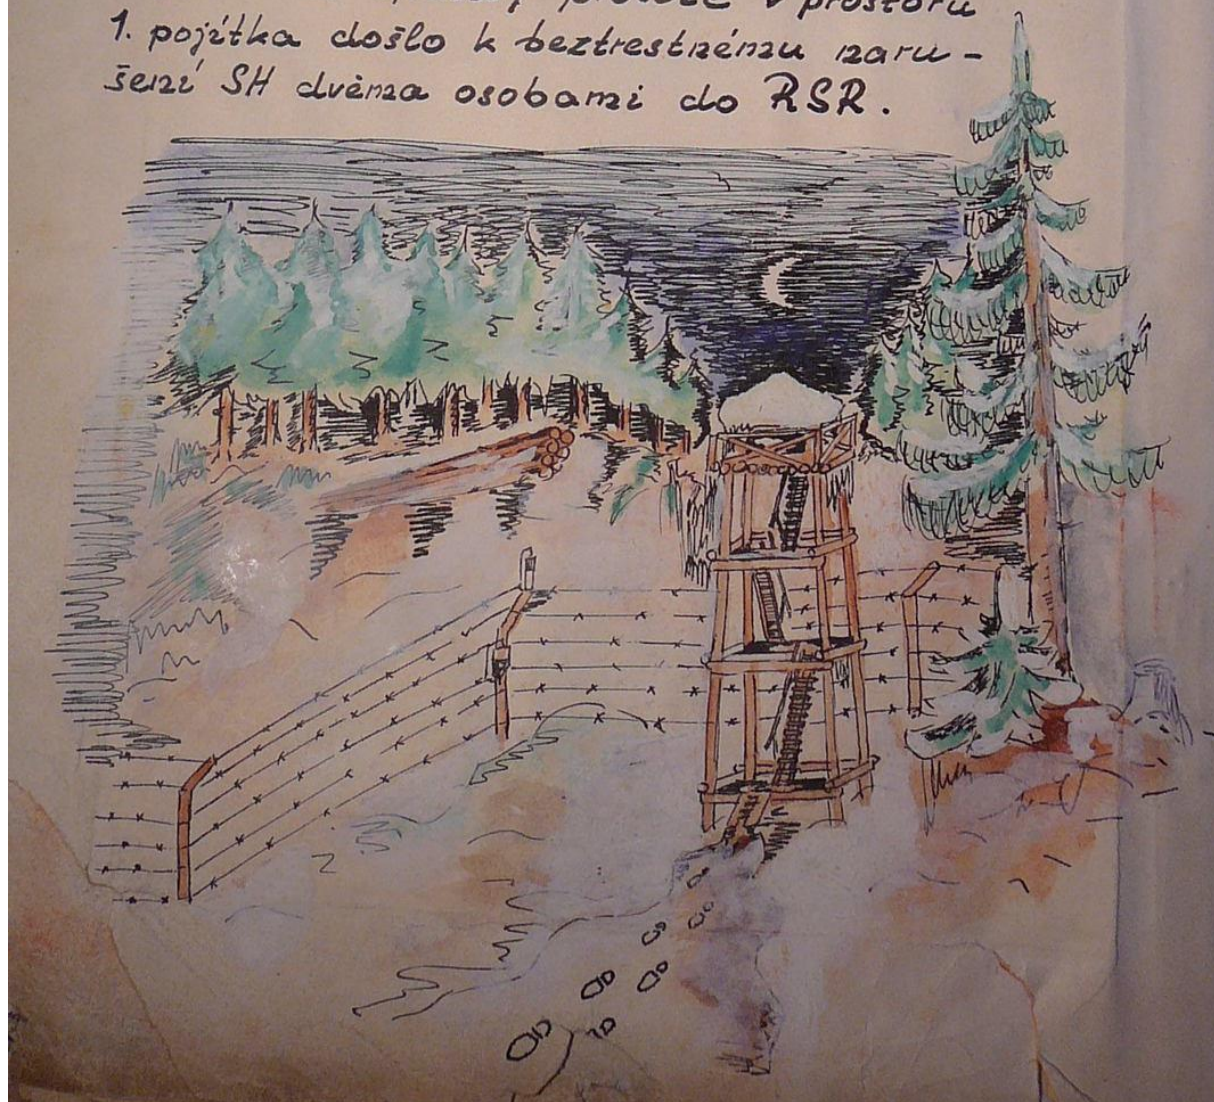 protože v prostoru
1. pojítka došlo k beztrestnému naru-
šení SH dvěma osobami do RSR.